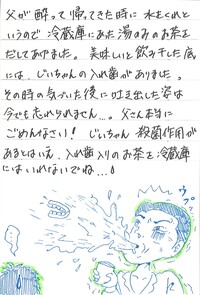 父が酔って帰ってきた時に水をくれと
いうので冷蔵庫にあった湯のみのお茶を
だしてあげました。美味しいと飲み干した底
には、じいちゃんの入れ歯がありました。
その時の気づいた後に吐き出した姿は
今でも忘れられません…。父さん本当に
ごめんなさい！じいちゃん殺菌作用が
あるとはいえ、入れ歯入りのお茶を冷蔵庫
にはいれないでね…！